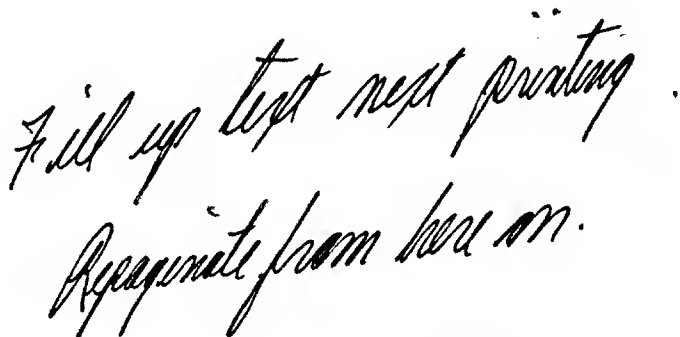 Fill up text next printing.
Repaginate from here on.